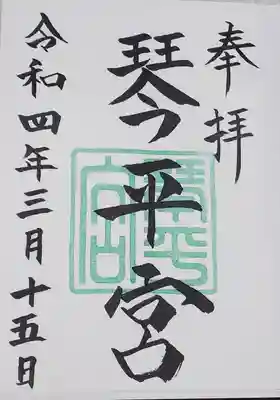 奉拝
琴平宮
令和四年三月十五日
琴平宮